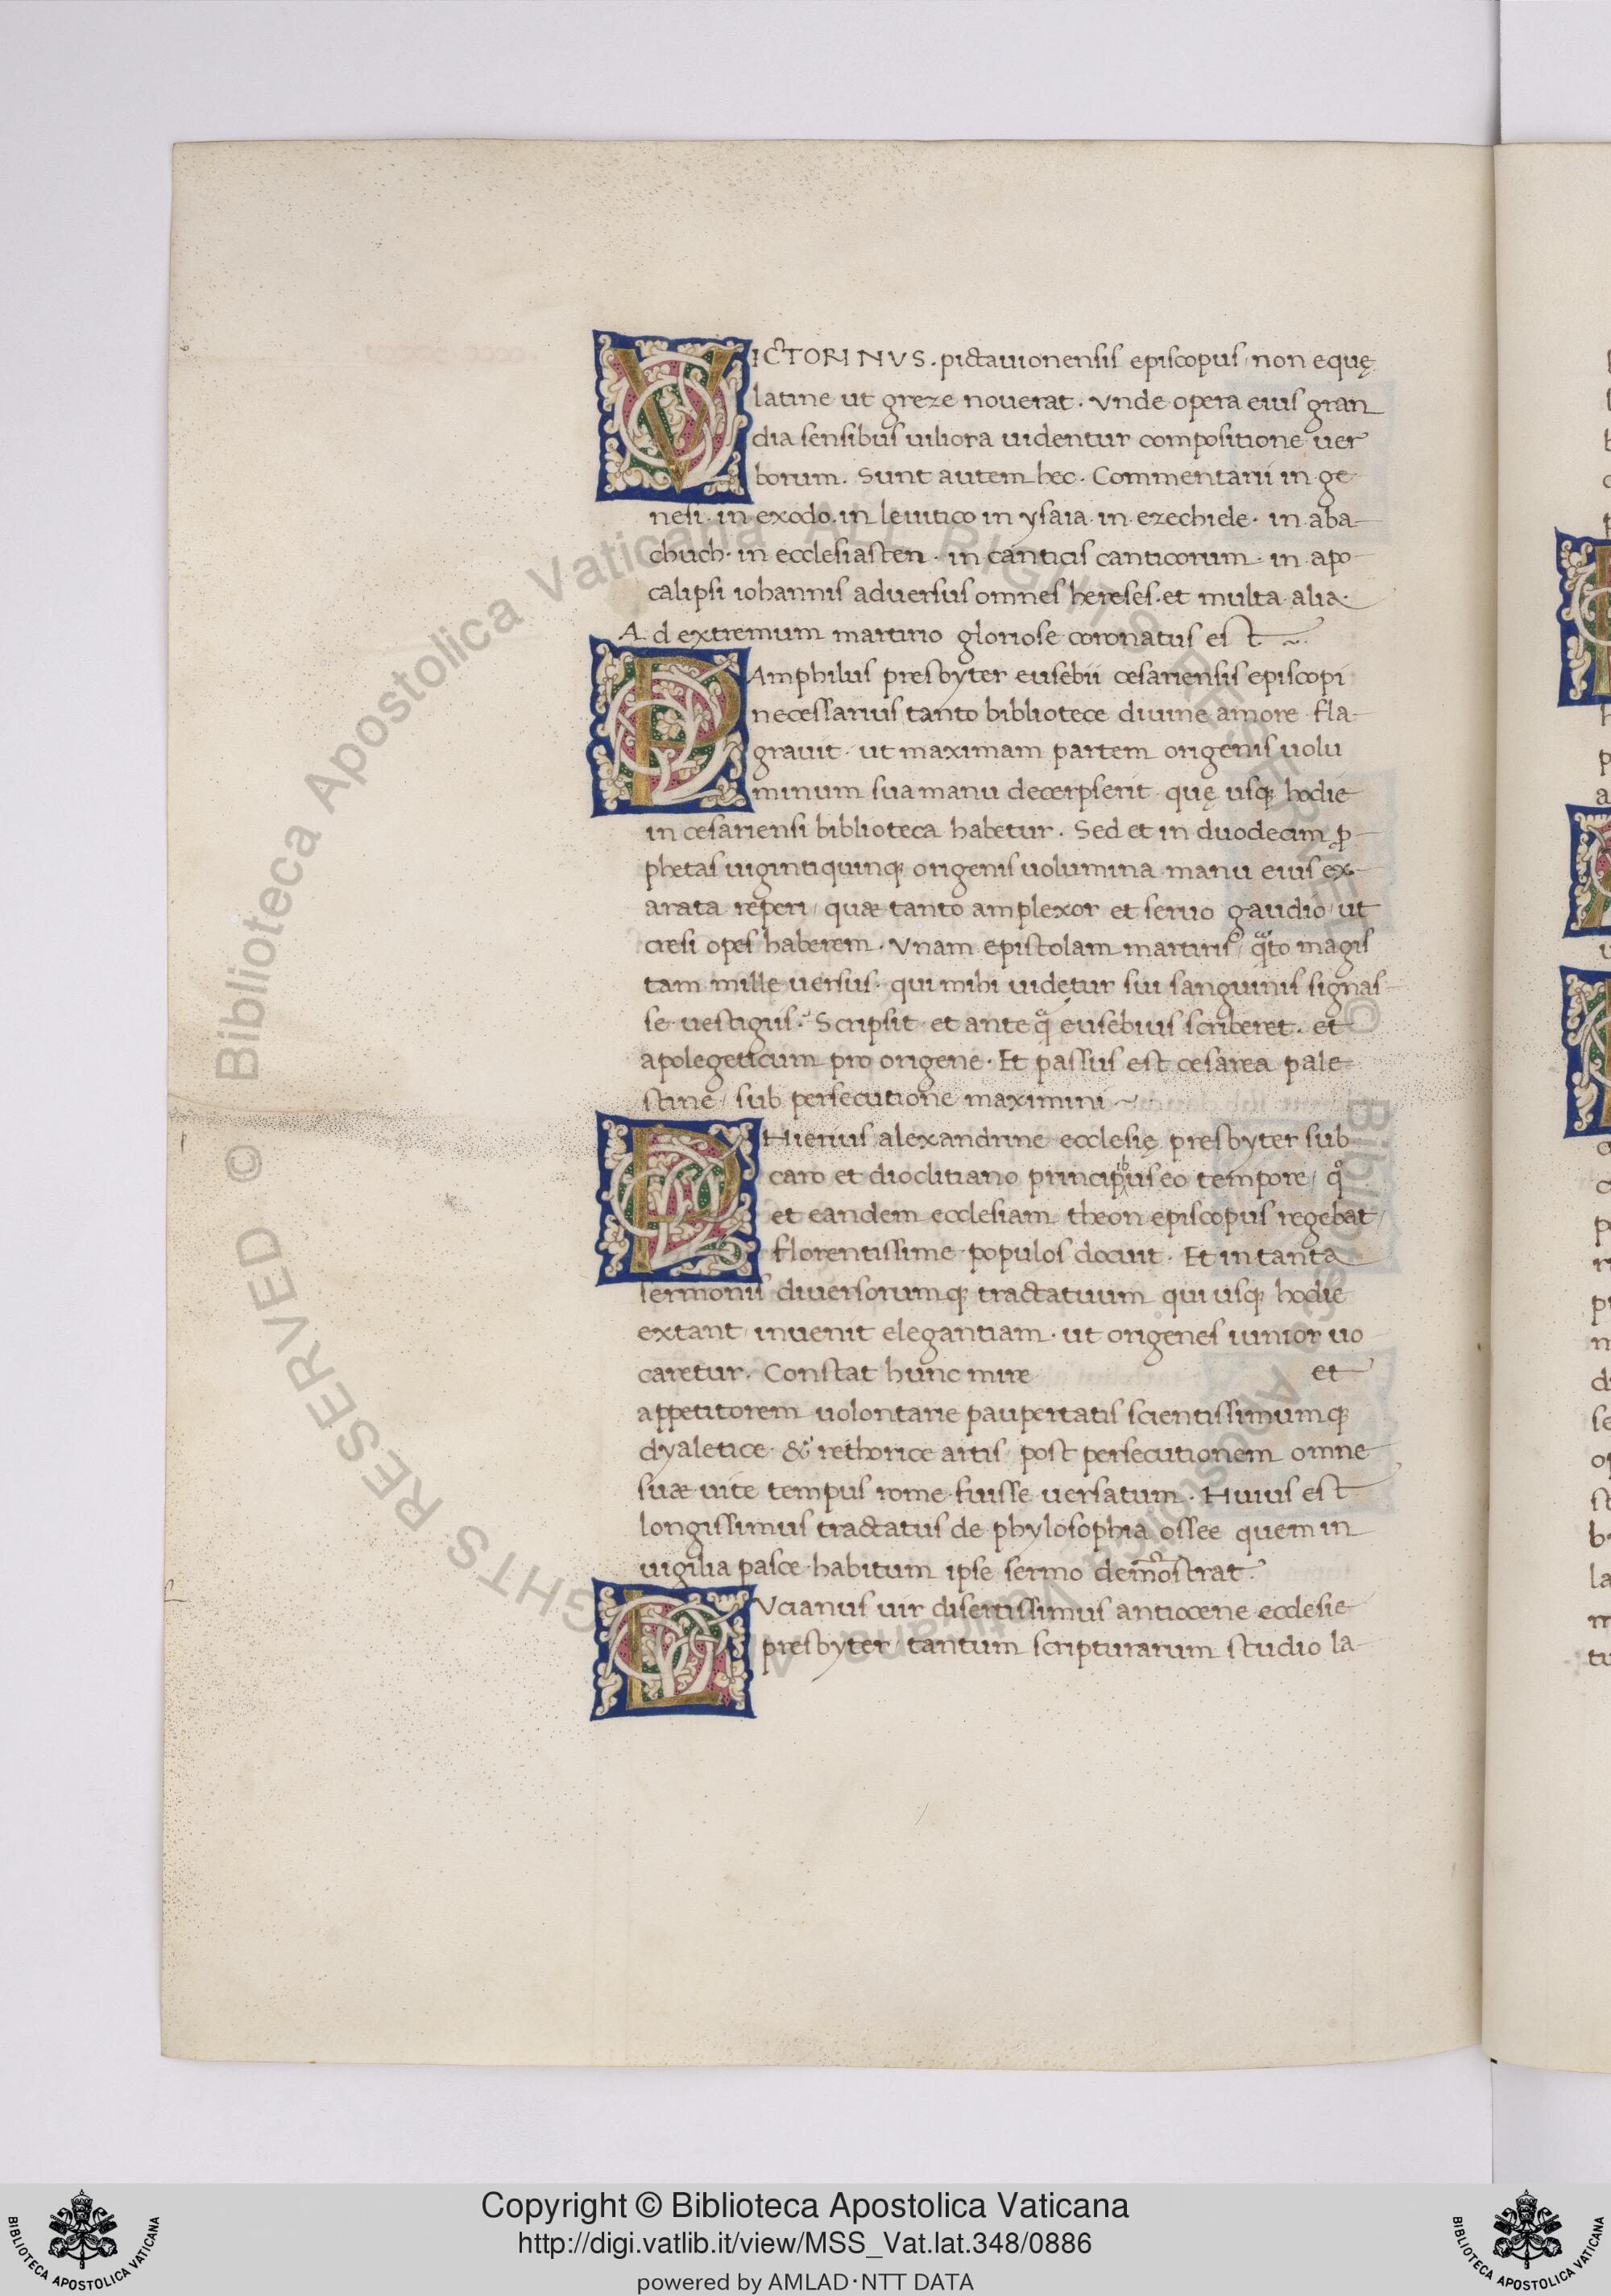 VICTORINVS. pictauionensis episcopus / non equę
latine ut greze nouerat. Vnde opera eius gran
dia sensibus uiliora uidentur compositione uer
borum. Sunt autem hec. Commentarii in ge-
nesi. in exodo. in leuitico in ysaia. in ezechiele. in aba-
chuch. in ecclesiasten. in canticis canticorum. in apo
calipsi iohannis aduersus omnes hereses. et multa alia.
Ad extremum martirio gloriose coronatus est ~
PAmphilus presbyter eusebii cesariensis episcopi
necessarius tanto bibliotece diuine amore fla-
grauit. ut maximam partem origenis uolu
minum sua manu decerpserit. quę usq; hodie
in cesariensi biblioteca habetur. Sed et in duodecim p̱-
phetas uigintiquinq; origenis uolumina manu eius ex-
arata reperi / quæ tanto amplexor et seruo gaudio / ut
cresi opes haberem. Vnam epistolam martiris / qͣto magis
tam mille uersus. qui mihi uidetur sui sanguinis signas-
se uestigiis. Scripsit et ante qͣ̃ eusebius scriberet. et
apolegeticum pro origene. Et passus est cesarea pale-
stine / sub persecutione maximini ~
PHierius alexandrine ecclesię presbyter sub
caro et dioclitiano principibus eo tempore / qͦ
et eandem ecclesiam theon episcopus regebat /
florentissime populos docuit. Et in tanta
sermonis diuersorumq; tractatuum qui usq; hodie
extant / inuenit elegantiam. ut origenes iunior uo
caretur. Constat hunc mire et
appetitorem uolontarie paupertatis scientissimumq;
dyaletice & rethorice artis / post persecutionem omne
suæ uite tempus rome fuisse uersatum. Huius est
longissimus tractatus de phylosophia ossee quem in
uigilia pasce habitum ipse sermo demõstrat.
LVcianus uir disertissimus antiocene ecclesie
presbyter / tantum scripturarum studio la-
Biblioteca Apostolica Vaticana ALL RIGHTS RESERVED ©
Biblioteca Apostolica Vaticana ALL RIGHTS RESERVED ©
BIBLIOTECA APOSTOLICA VATICANA
Copyright © Biblioteca Apostolica Vaticana
http://digi.vatlib.it/view/MSS_Vat.lat.348/0886
powered by AMLAD·NTT DATA
BIBLIOTECA APOSTOLICA VATICANA